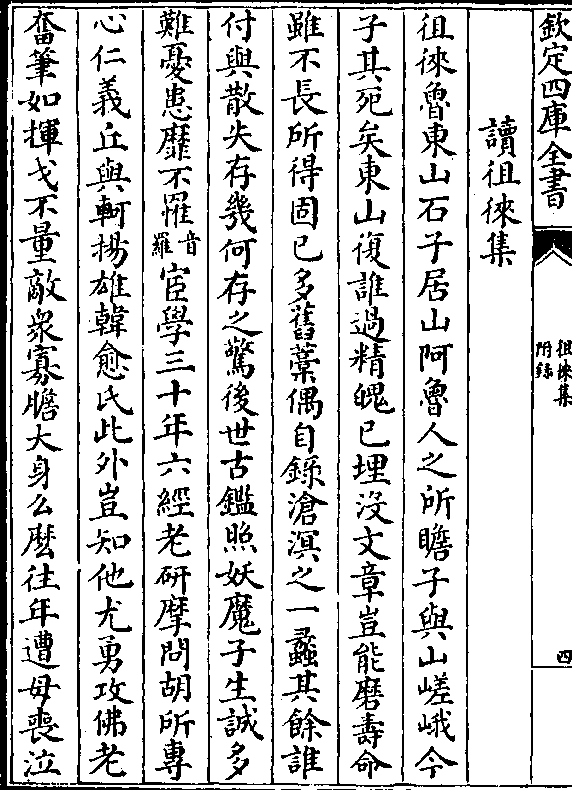 欽定四庫全書
徂徠集
附錄
四
讀徂徠集
徂徠魯東山石子居山阿魯人之所瞻子與山嵯峨今
子其死矣東山復誰過精魄已埋没文章豈能磨壽命
雖不長所得固已多舊藁偶自錄滄溟之一蠡其餘誰
付與散失存幾何存之驚後世古鑑照妖魔子生誠多
難憂患靡不罹音羅宦學三十年六經老研摩問胡所專
心仁義丘與軻揚雄韓愈氏此外豈知他尤勇攻佛老
奮筆如揮戈不量敵衆寡膽大身么麽往年遭母喪泣